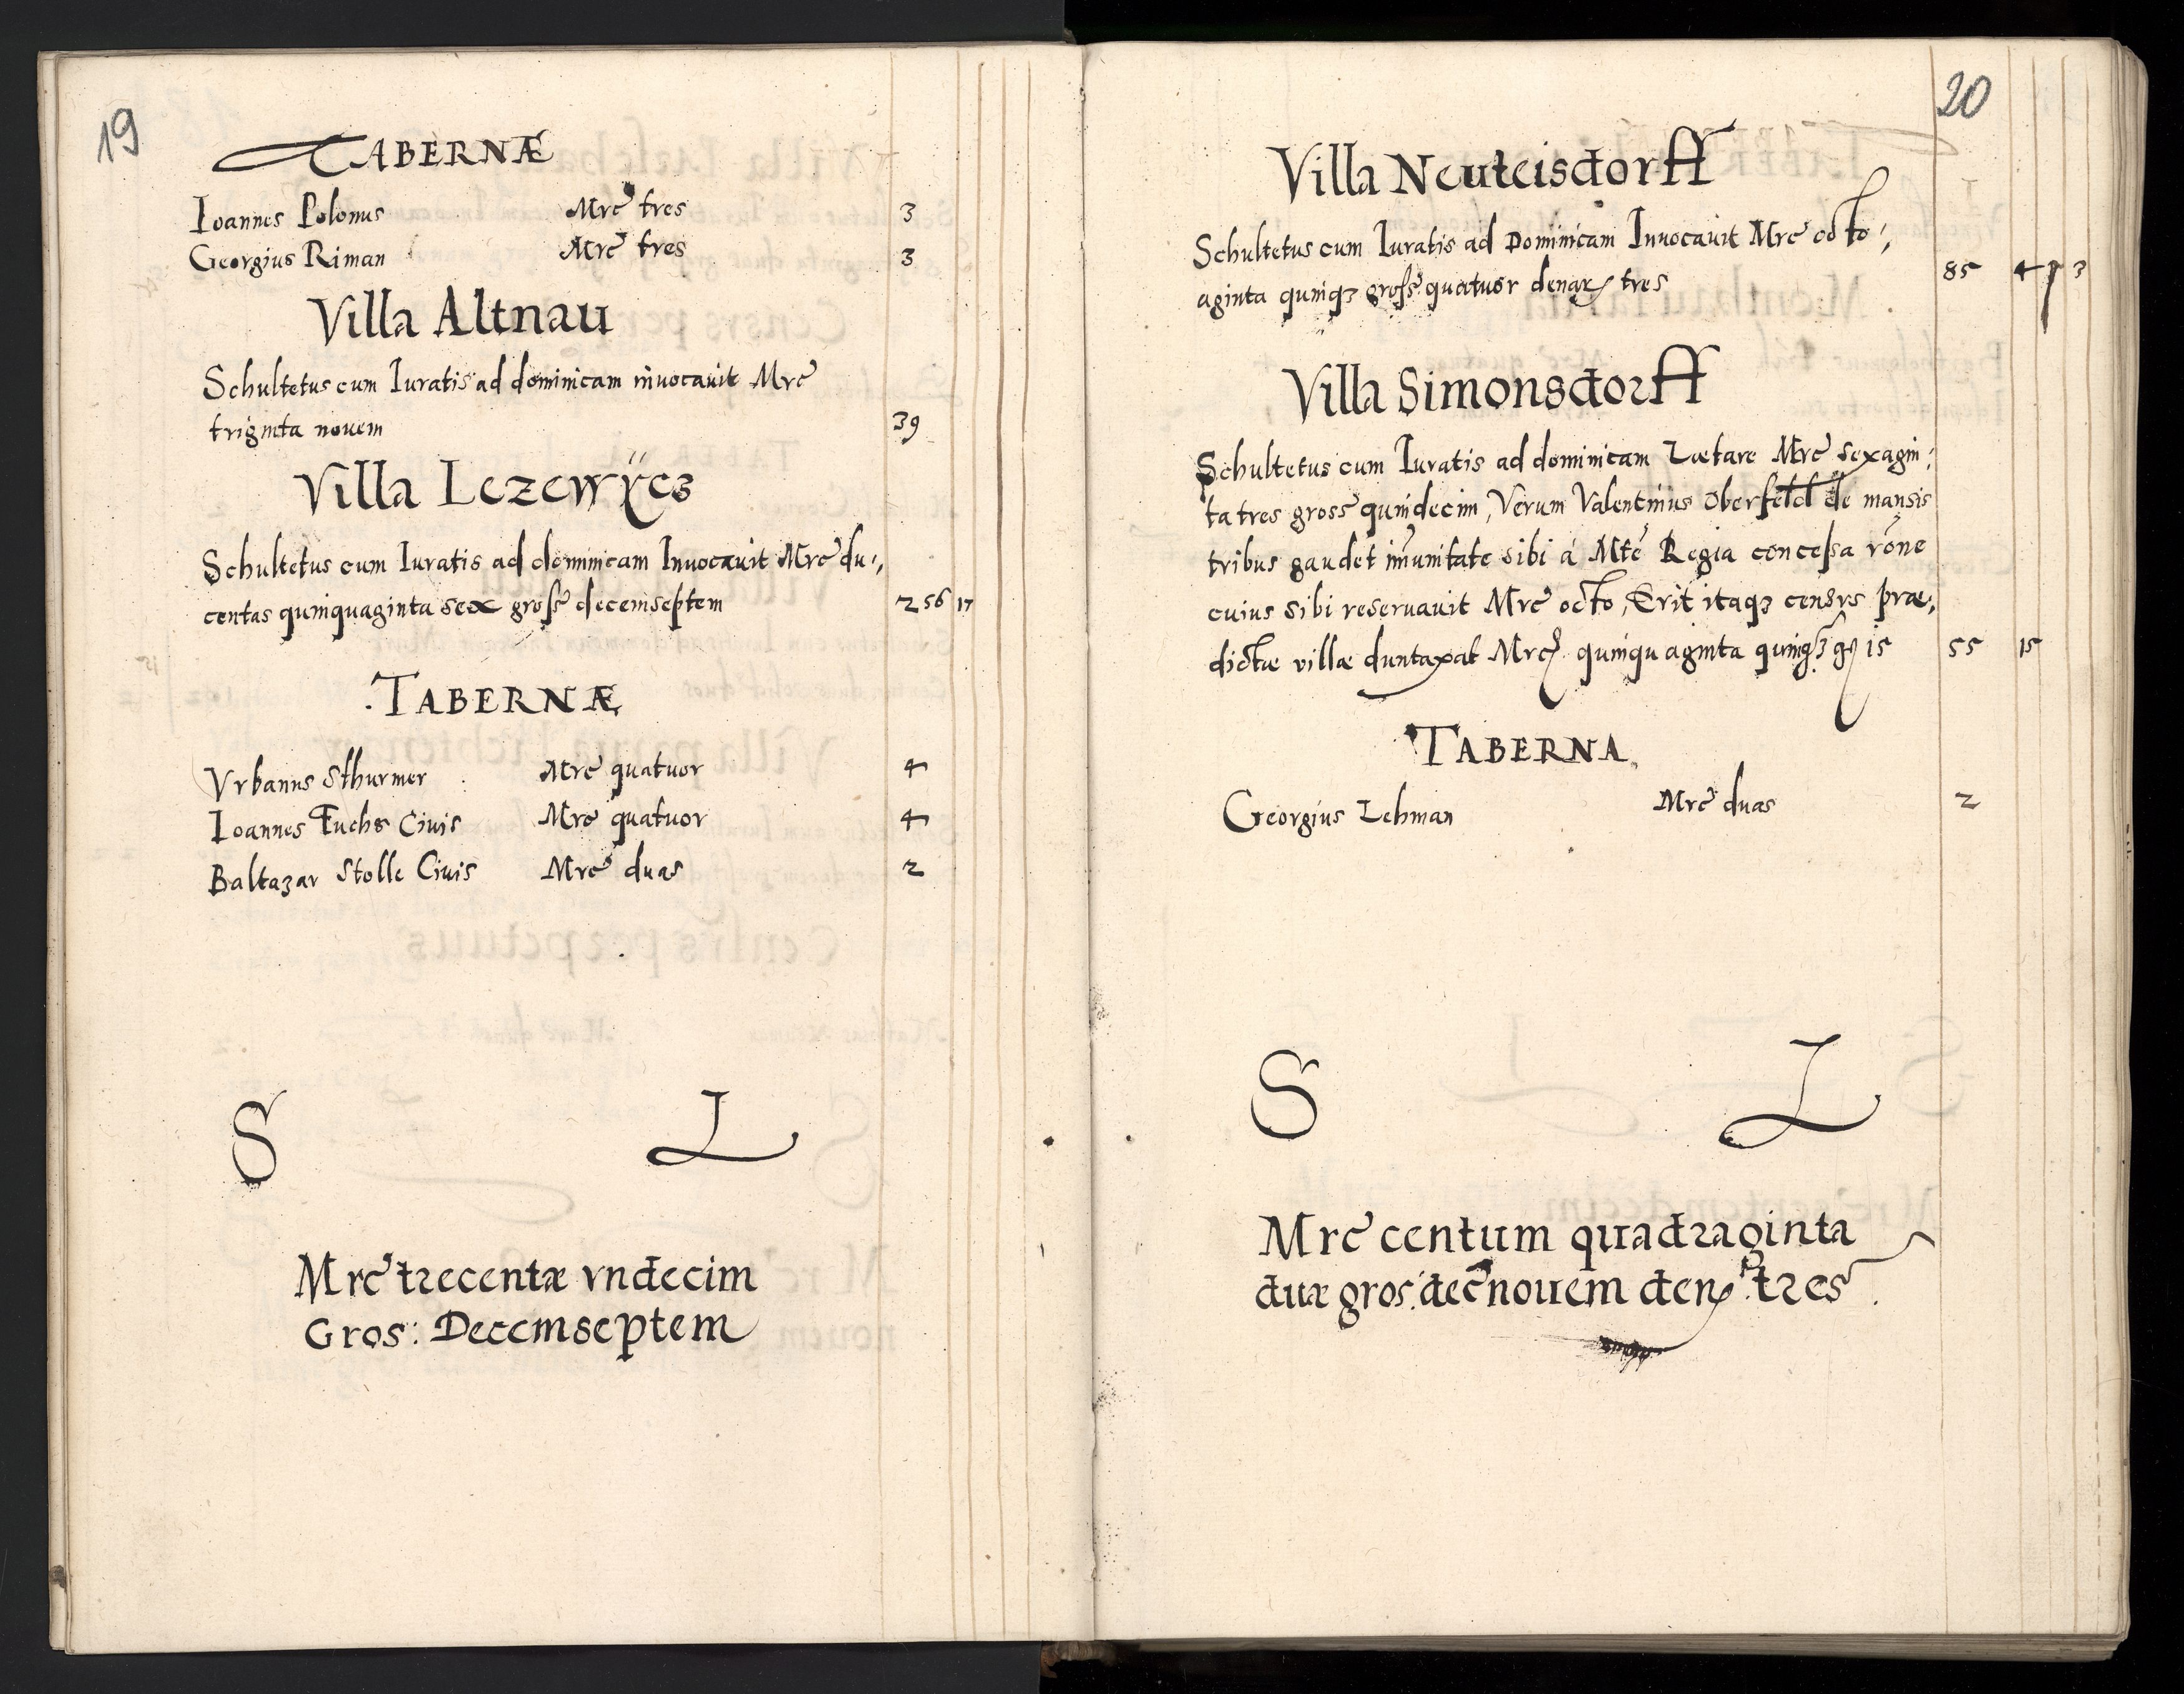 19
TABERNÆ
Ioannes Polonus Mrc̃ tres 3
Georgius Riman Mrc̃ tres 3
Villa Altnau
Schultetus cum Iuratis ad dominicam inuocauit Mrc̃
triginta nouem 39
Villa Lezewÿcz
Schultetus cum Iuratis ad dominicam Inuocauit Mrc̃ du:,
centas quinquaginta sex gross decemseptem 256 17
TABERNÆ
Vrbanus Sthurmer Mrc̃ quatuor 4
Ioannes Fuchs Ciuis Mrc̃ quatuor 4
Baltazar Stolle Ciuis Mrc̃ duas 2
S L
Mrc̃ trecentæ vndecim
Gros: Decemseptem
20
Villa Neuteisdorff
Schultetus cum Iuratis ad Dominicam Inuocauit Mrc̃ octo:,
aginta quinqȝ gross quatuor denarꝝ tres 85 4 3
Villa Simonsdorff
Schultetus cum Iuratis ad dominicam Lætare Mrc̃ sexagin:
ta tres gross quindecim, Verum Valentinus Oberfeld de mansis
tribus gaudet im̃unitate sibi á Mtẽ Regia concessa rõne
cuius sibi reseruauit Mrc̃ octo, Erit itaqȝ censvs præ,
dictæ villæ duntaxat Mrcꝝ quinquaginta quinqȝ gꝝ 15 55 15
TABERNA
Georgius Lehman Mrc̃ duas 2
S L
Mrc̃ centum quadraginta
duæ gros: dec̃nouem denꝝ tres